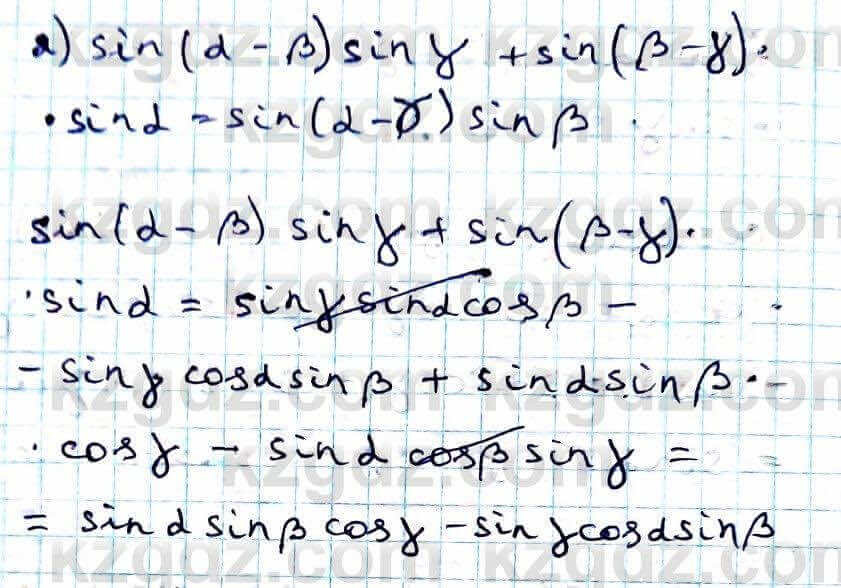 а) sin(α - β) sin γ + sin(β - γ) ·
· sin α = sin(α - γ) sin β
sin(α - β) sin γ + sin(β - γ) ·
· sin α = sin γ sin α cos β -
- sin γ cos α sin β + sin α sin β ·
· cos γ - sin α cos β sin γ =
= sin α sin β cos γ - sin γ cos α sin β